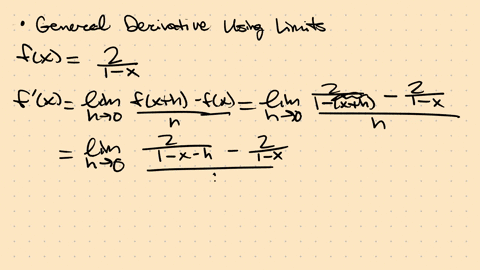 • General Derivative Using Limits
f(x) = 2/(1-x)
f'(x) = lim h→0 (f(x+h) - f(x))/h = lim h→0 (2/(1-(x+h)) - 2/(1-x))/h
= lim h→0 (2/(1-x-h) - 2/(1-x))/